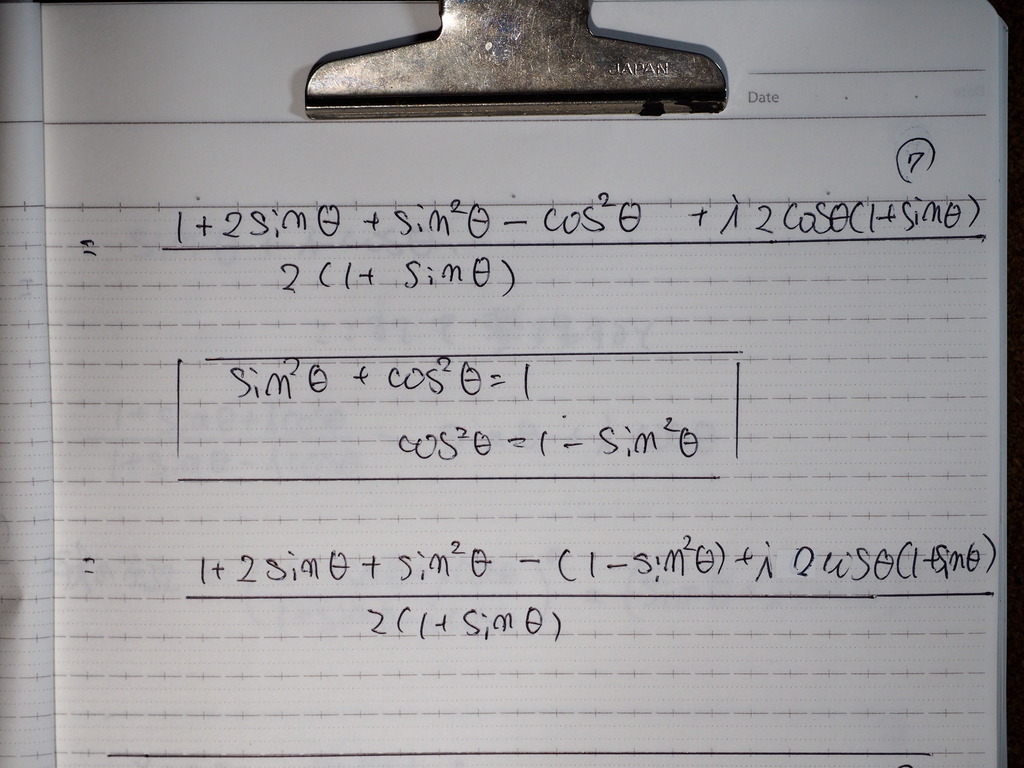 JAPAN
Date
⑦
= 1 + 2 sinθ + sin²θ − cos²θ + i 2 cosθ(1+sinθ)
2 (1 + sinθ)
sin²θ + cos²θ = 1
cos²θ = 1 − sin²θ
= 1 + 2 sinθ + sin²θ − (1 − sin²θ) + i 2 cosθ(1+sinθ)
2 (1 + sinθ)